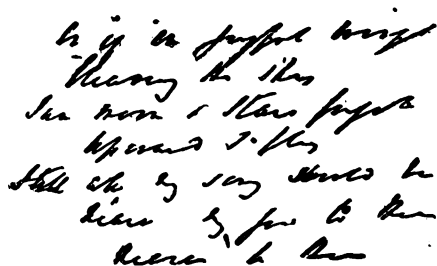 Or if on joyful wing
Cleaving the sky
Sun moon & stars forgot
Upward I fly
Still all my song should be
Nearer my God to Thee
Nearer to Thee